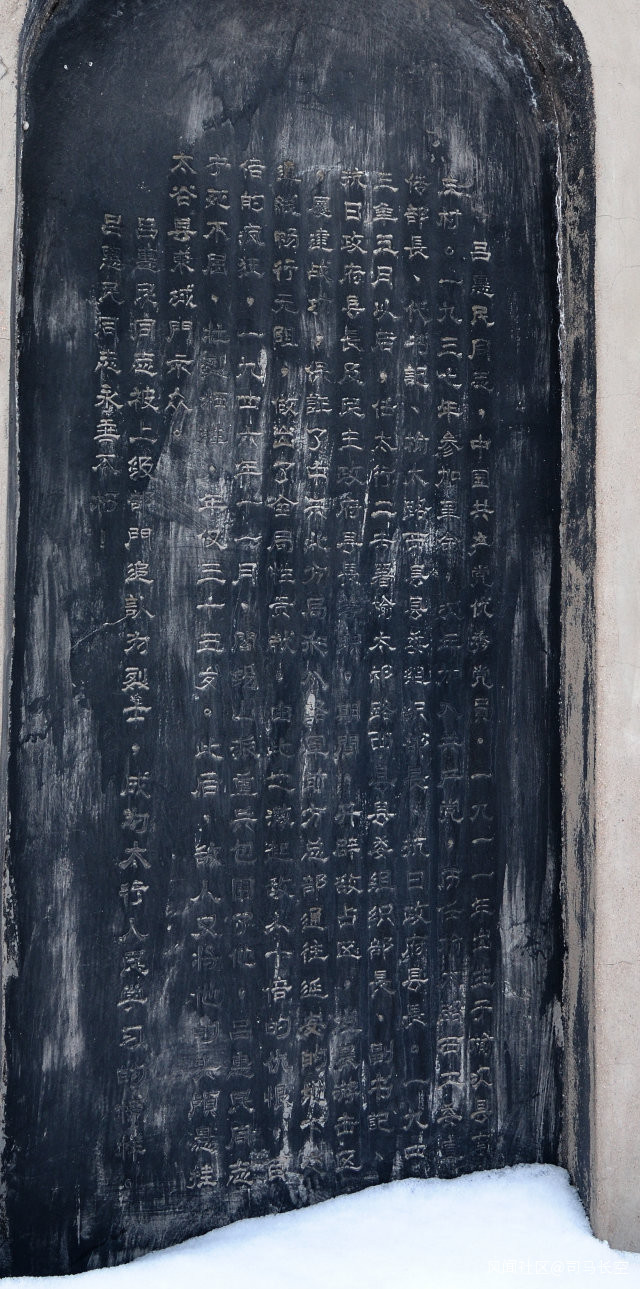 吕惠民同志，中国共产党优秀党员。一九一一年出生于榆次县
王村。一九三七年参加革命，次年加入共产党，历任榆太路西工委宣
传部長、代书记、榆太路西县县委组织部長、抗日政府县長。一九四
三年五月以后，任太行二专署榆太祁路西县县委组织部長、副书记、
抗日政府县長及民主政府县長等职。期间，开辟敌占区，
屡建战功，保証了中共北方局和八路軍前方总部通往延安的
線畅行无阻，做出了全局性贡献。由此也激起敌人十倍的仇恨、百
倍的疯狂，一九四六年十一月，閻錫山派重兵包围了他，吕惠民同志
宁死不屈，壮烈牺牲，年仅三十五岁。此后，敌人又将他的头颅悬挂
太谷县東城門示众。
吕惠民同志被上级部門追認为烈士，成为太行人民学习的榜样。
吕惠民同志永垂不朽！